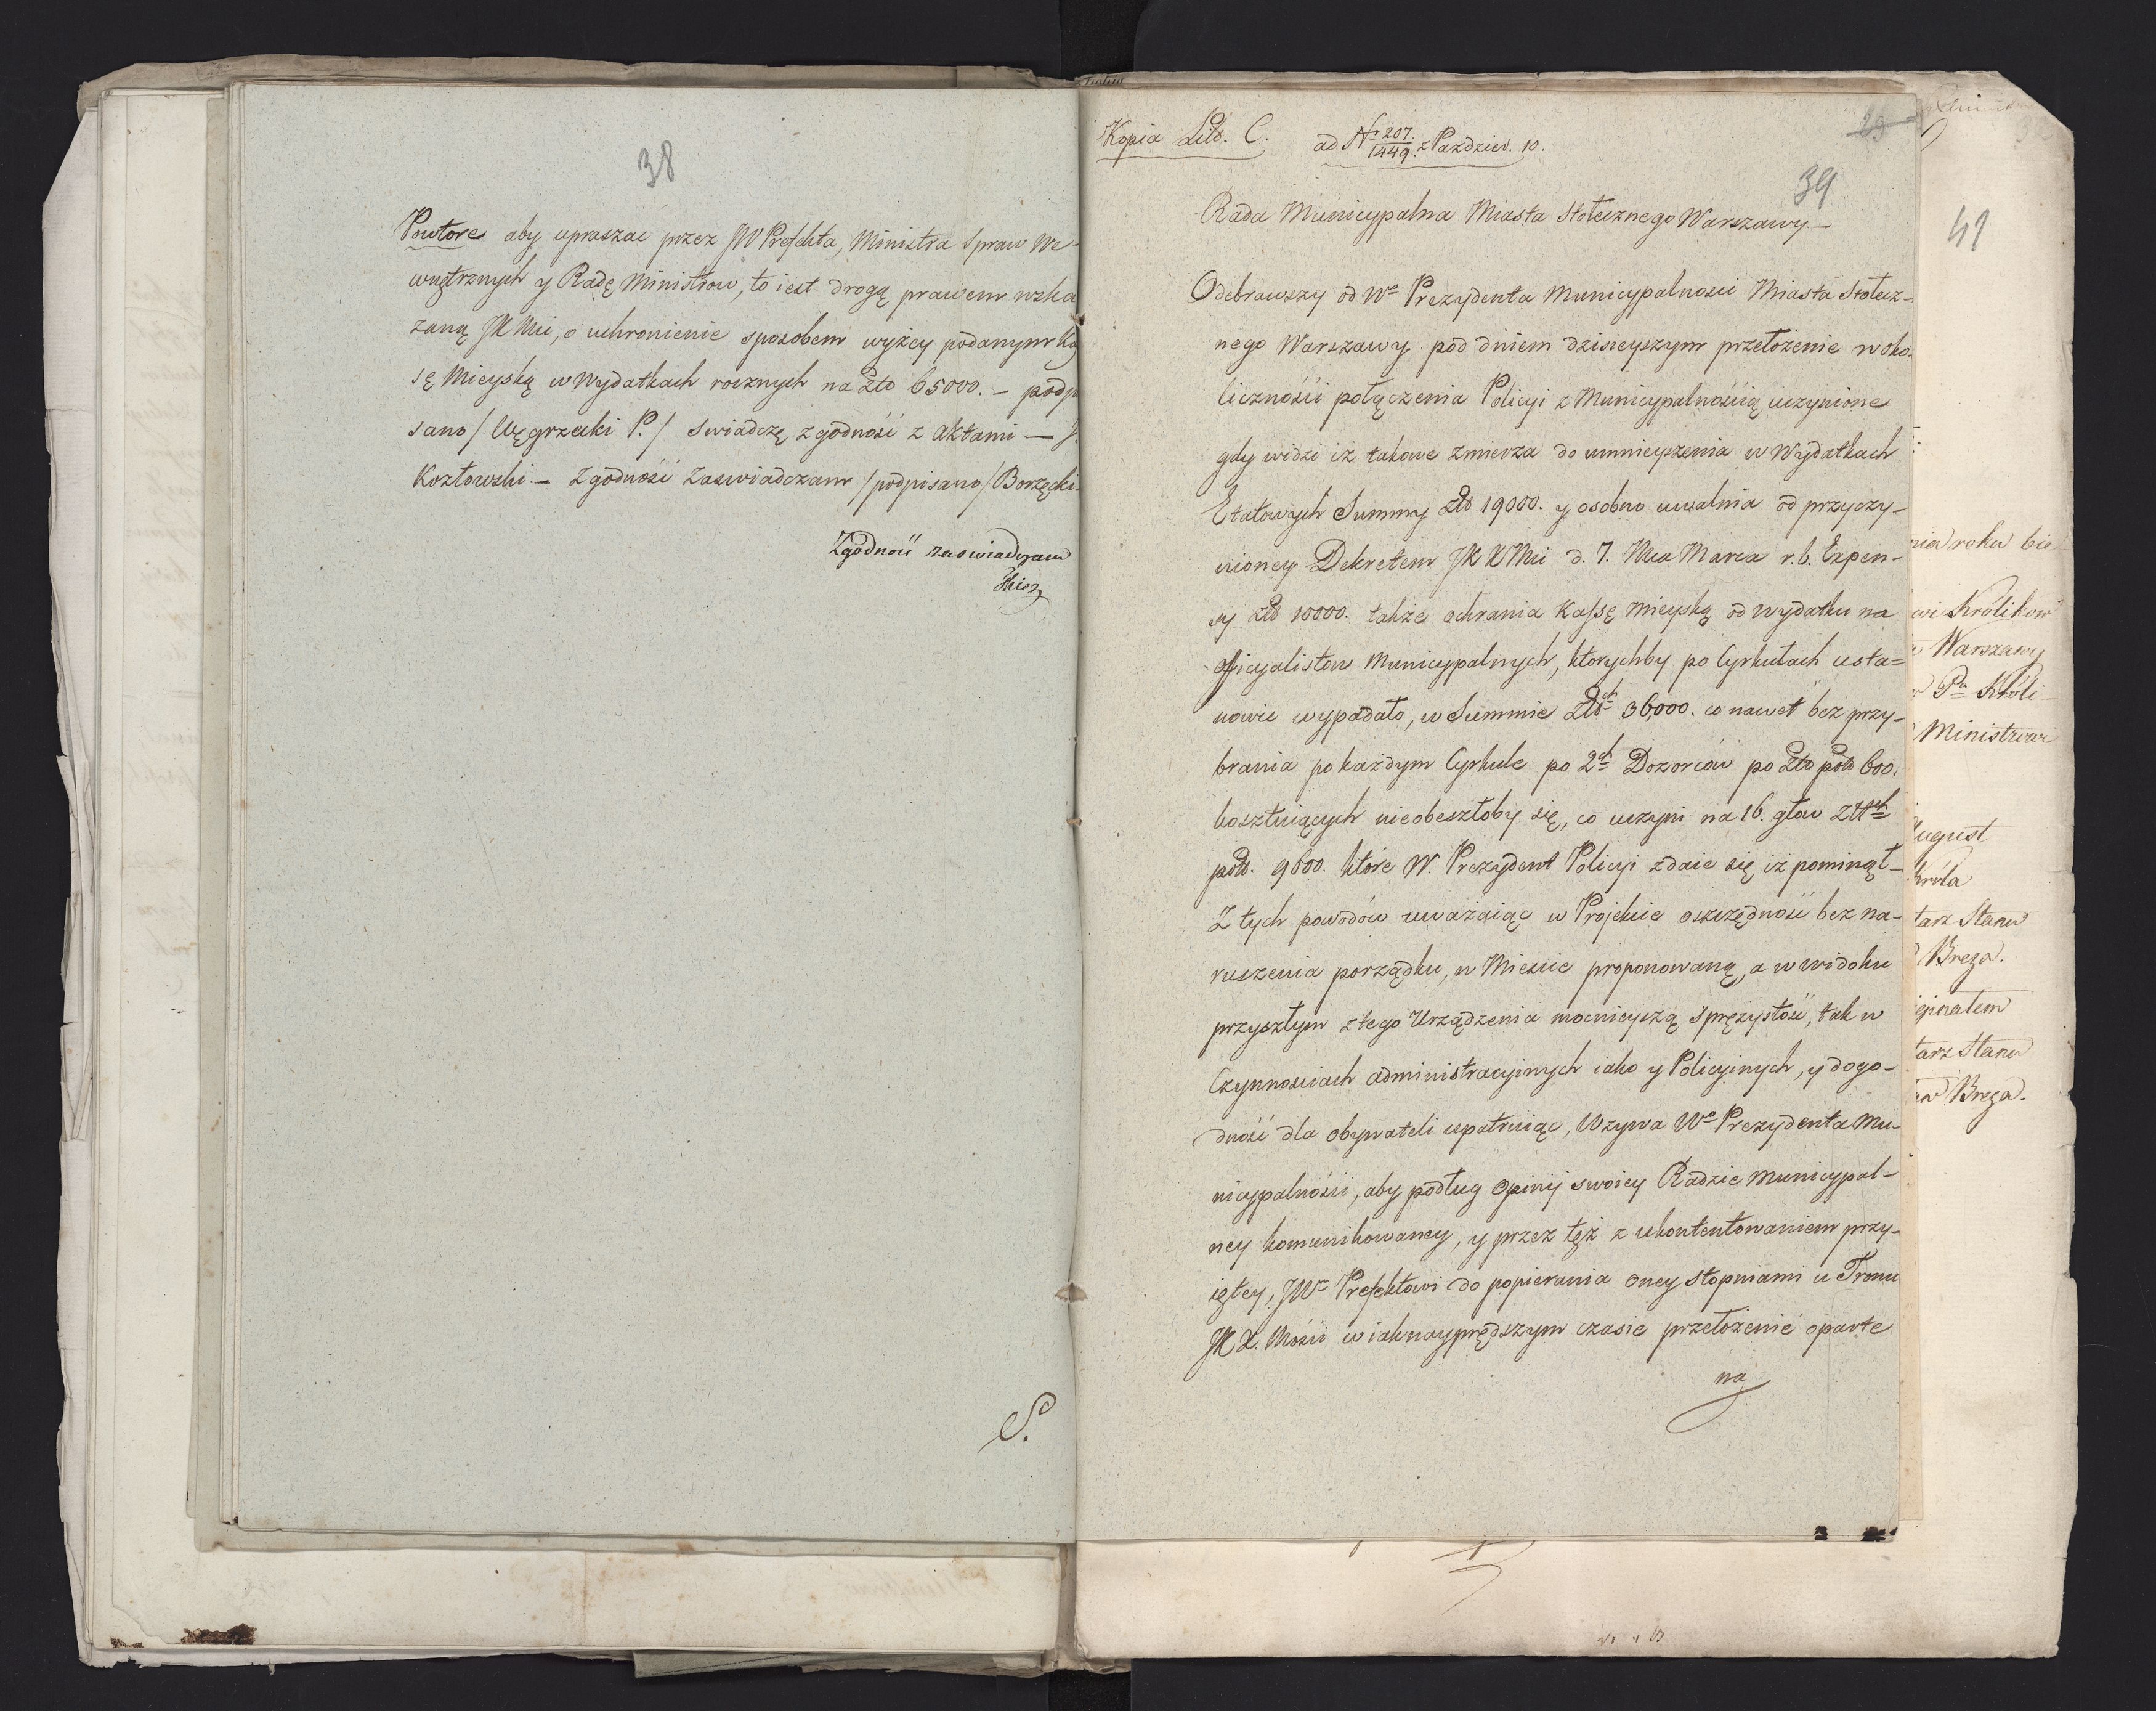 38
Powtore aby upraszać przez JW Prefekta, Ministra Spraw We-
wnętrznych y Radę Ministrow, to iest drogą prawem wzka
zaną JK Mci, o uchronienie sposobem wyżey podanym Ka
sę Mieyską w Wydatkach rocznych na Zło 65000. – podpi
sano / Węgrzecki P. / swiadczę zgodność z Aktami — J.
Kozłowski. – Zgodność Zaswiadczam / podpisano / Borzęcki.
Zgodność zaswiadczam
S.
Kopia Litt. C. ad Nr 207/1449. z Pazdzier. 10.
29
39
Rada Municypalna Miasta Stołecznego Warszawy. –
Odebrawszy od We Prezydenta Municypalnosci Miasta Stołecz-
nego Warszawy pod dniem dzisieyszym przełożenie w oko-
licznośći połączenia Policyi z Municypalnośćią uczynione
gdy widzi iż takowe zmierza do umnieyszenia w Wydatkach
Etatowych Summy Złł 19000. y osobno uwalnia od przyczy-
nioney Dekretem JK X Mci d. 7. Mca Marca r. b. Expen-
sy Złł 10000. także ochrania Kassę Mieyską od wydatku na
Officyalistow Municypalnych, ktorychby po Cyrkułach usta=
nowić wypadało, w Summie Złłch 36,000. co nawet bez przy-
brania po każdym Cyrkule po 2ch Dozorców po Zło pols 600.
kosztuiących nieobeszłoby się, co uczyni na 16. głow Złłch
pols. 9600. które W. Prezydent Policyi zdaie się iż pominął –
Z tych powodów uważaiąc w Projekcie oszczędność bez na-
ruszenia porządku, w Miescie proponowaną, a w widoku
przyszłym z tego Urządzenia mocnieyszą sprężystość, tak w
Czynnosciach administracyinych iako y Policyinych, y dogo-
dność dla obywateli upatruiąc, Wzywa We Prezydenta Mu-
nicypalnośći, aby podług Opinij swoiey Radzie Municypal-
ney komunikowaney, y przez tęż z ukontentowaniem przy-
iętey, JWu Prefektowi do popierania oney stopniami u Tronu
JK X. Mości w iaknayprędszym czasie przełożenie oparte
na
41
nia roku bie
wi Królikow
Warszawy
Pa Króli
Ministrow
August
króla
tarz Stanu
Breza.
ginałem
tarz Stanu
Breza.